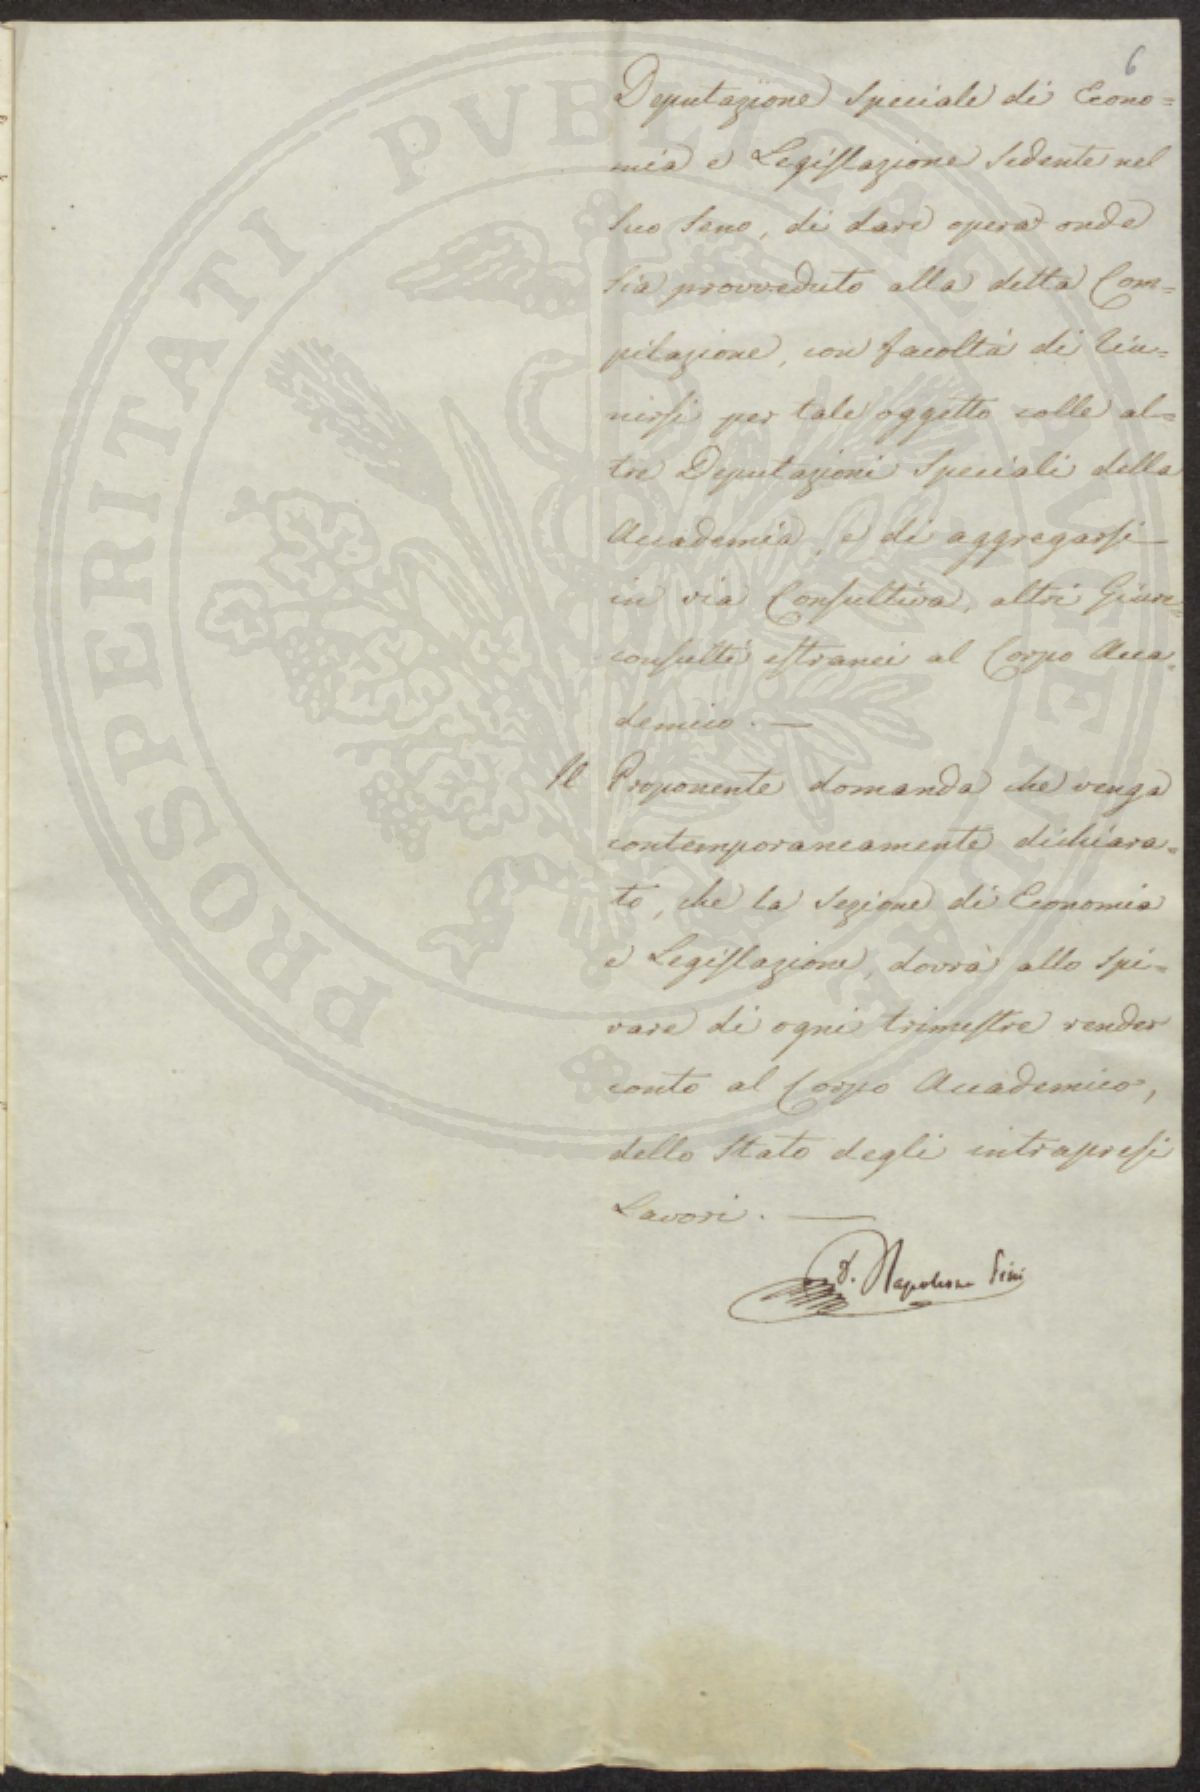 6
Deputazione Speciale di Econo=
mia e Legislazione Sedente nel
Suo Seno, di dare opera onde
Sia provveduto alla detta Com=
pilazione, con facoltà di riu=
nirsi per tale oggetto colle al=
tre Deputazioni Speciali della
Accademia, e di aggregarsi
in via Consultiva, altri Giure=
consulti estranei al Corpo Acca=
demico. —
Il Proponente domanda che venga
contemporaneamente dichiara=
to, che la Sezione di Economia
e Legislazione, dovrà allo Spi=
rare di ogni trimestre render
conto al Corpo Accademico,
dello Stato degli intrapresi
Lavori. —
Napoleone Pini
PROSPERITATI PVBLICAE AVGENDAE